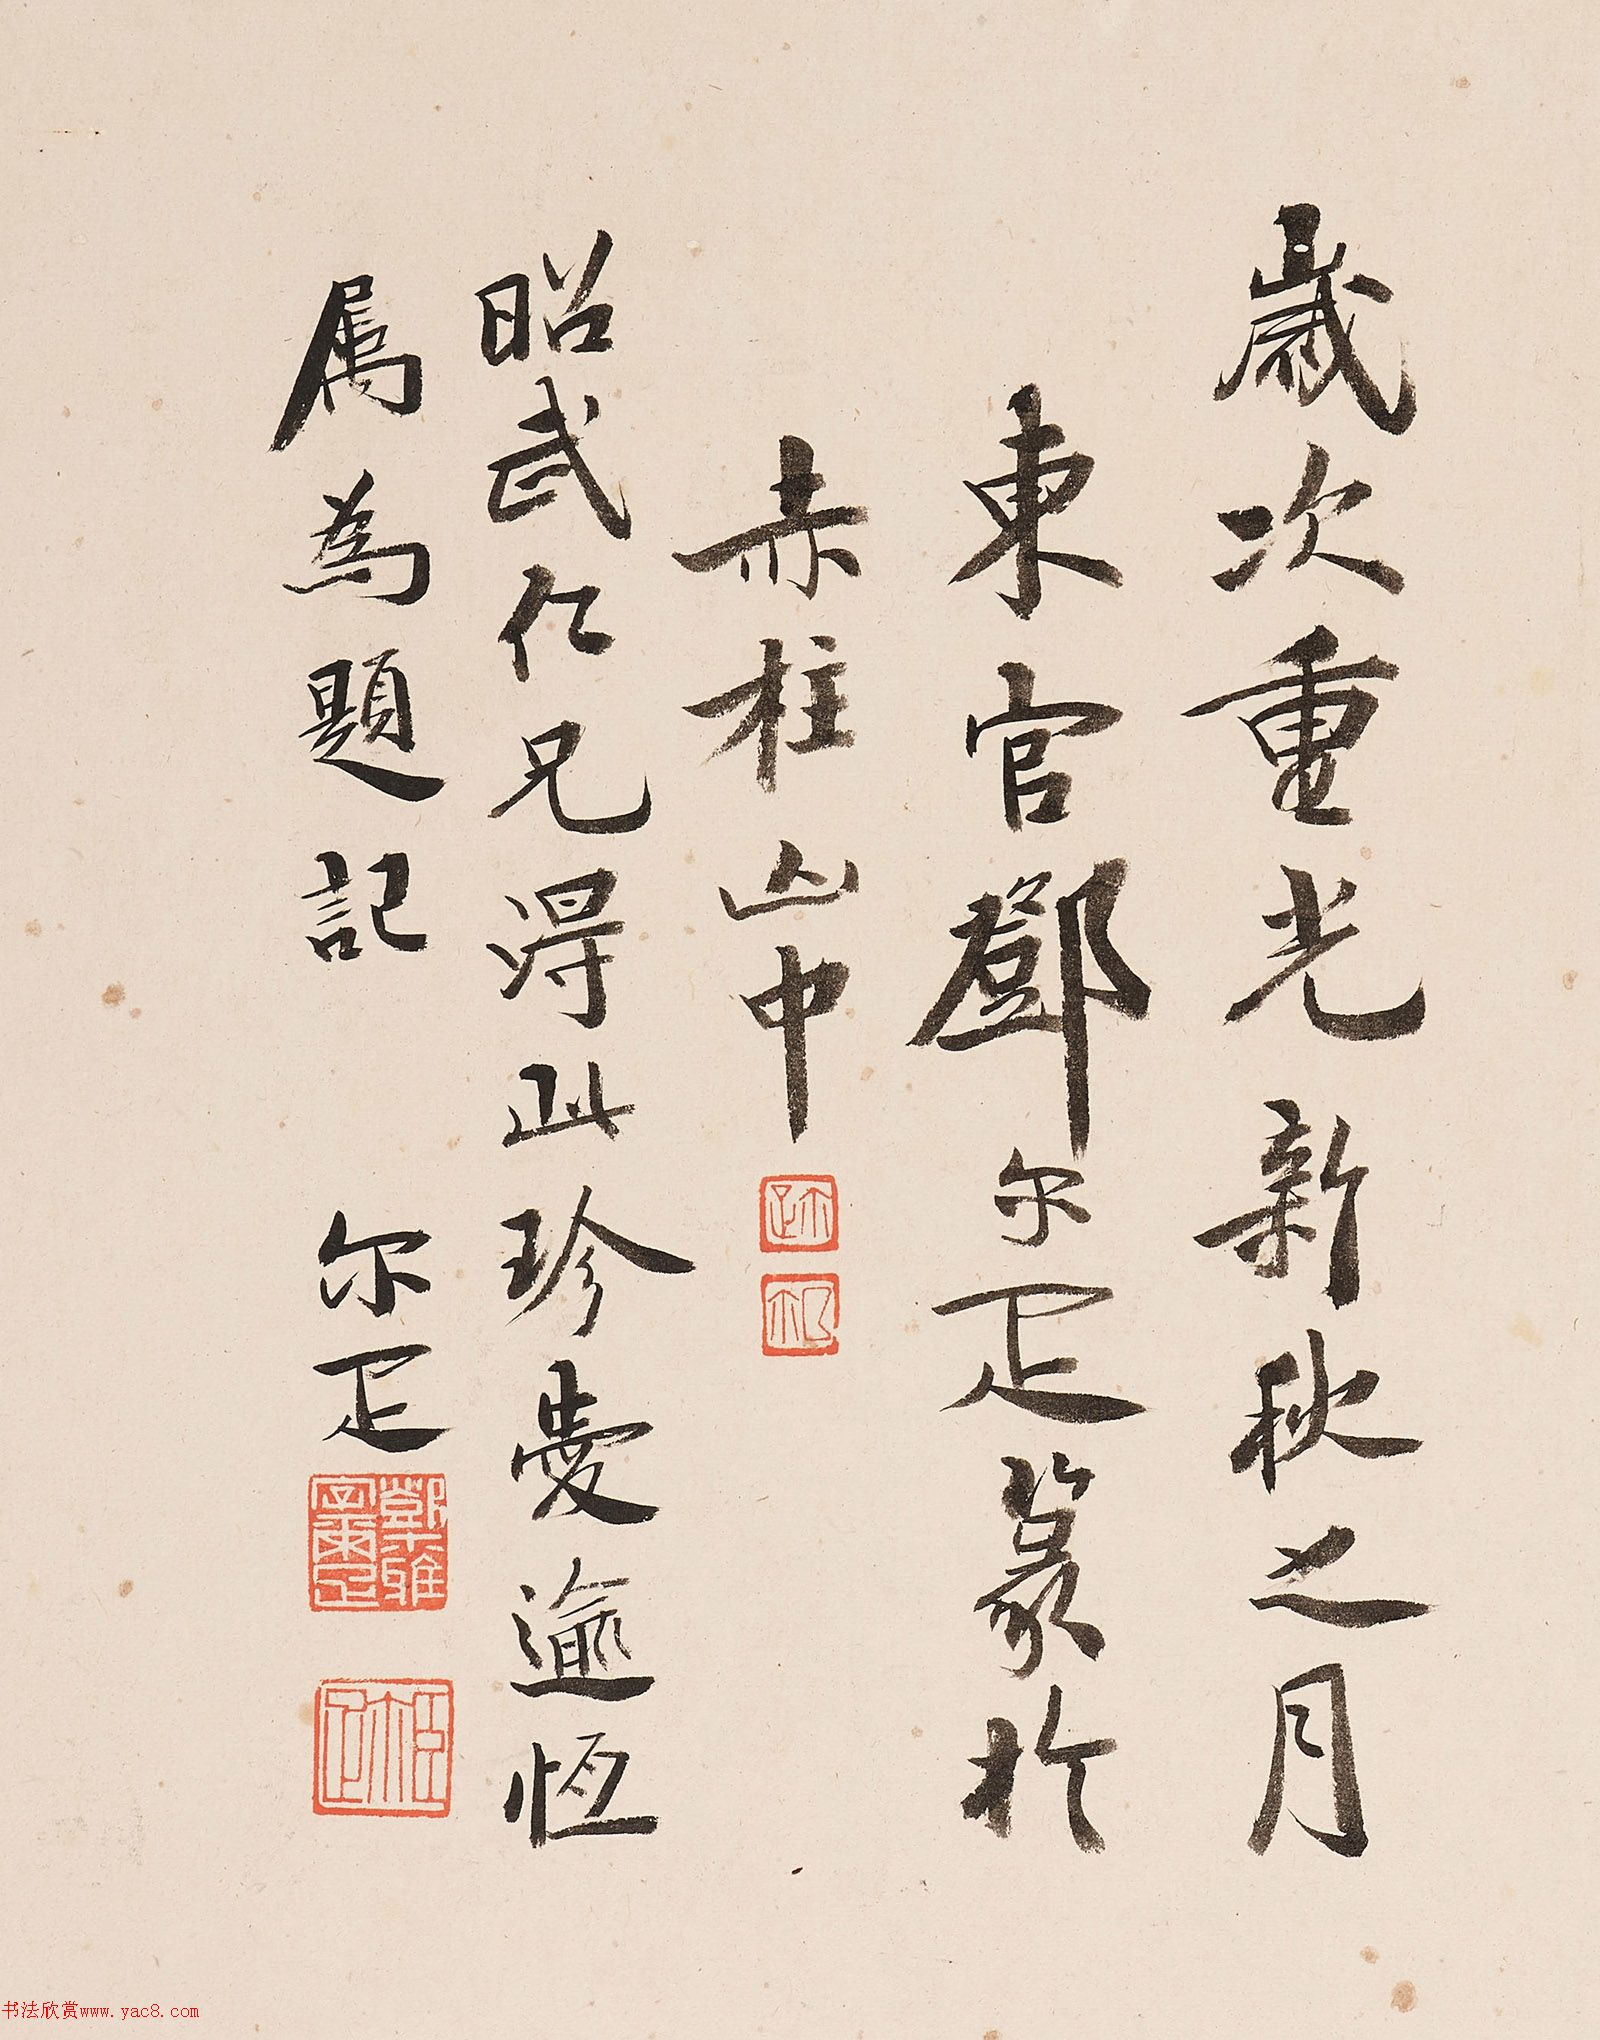 歲次重光新秋之月
東官鄧尔疋篆於
赤柱山中
昭武仁兄得此珍愛逾恆
属為題記 尔疋
書法欣赏www.yac8.com